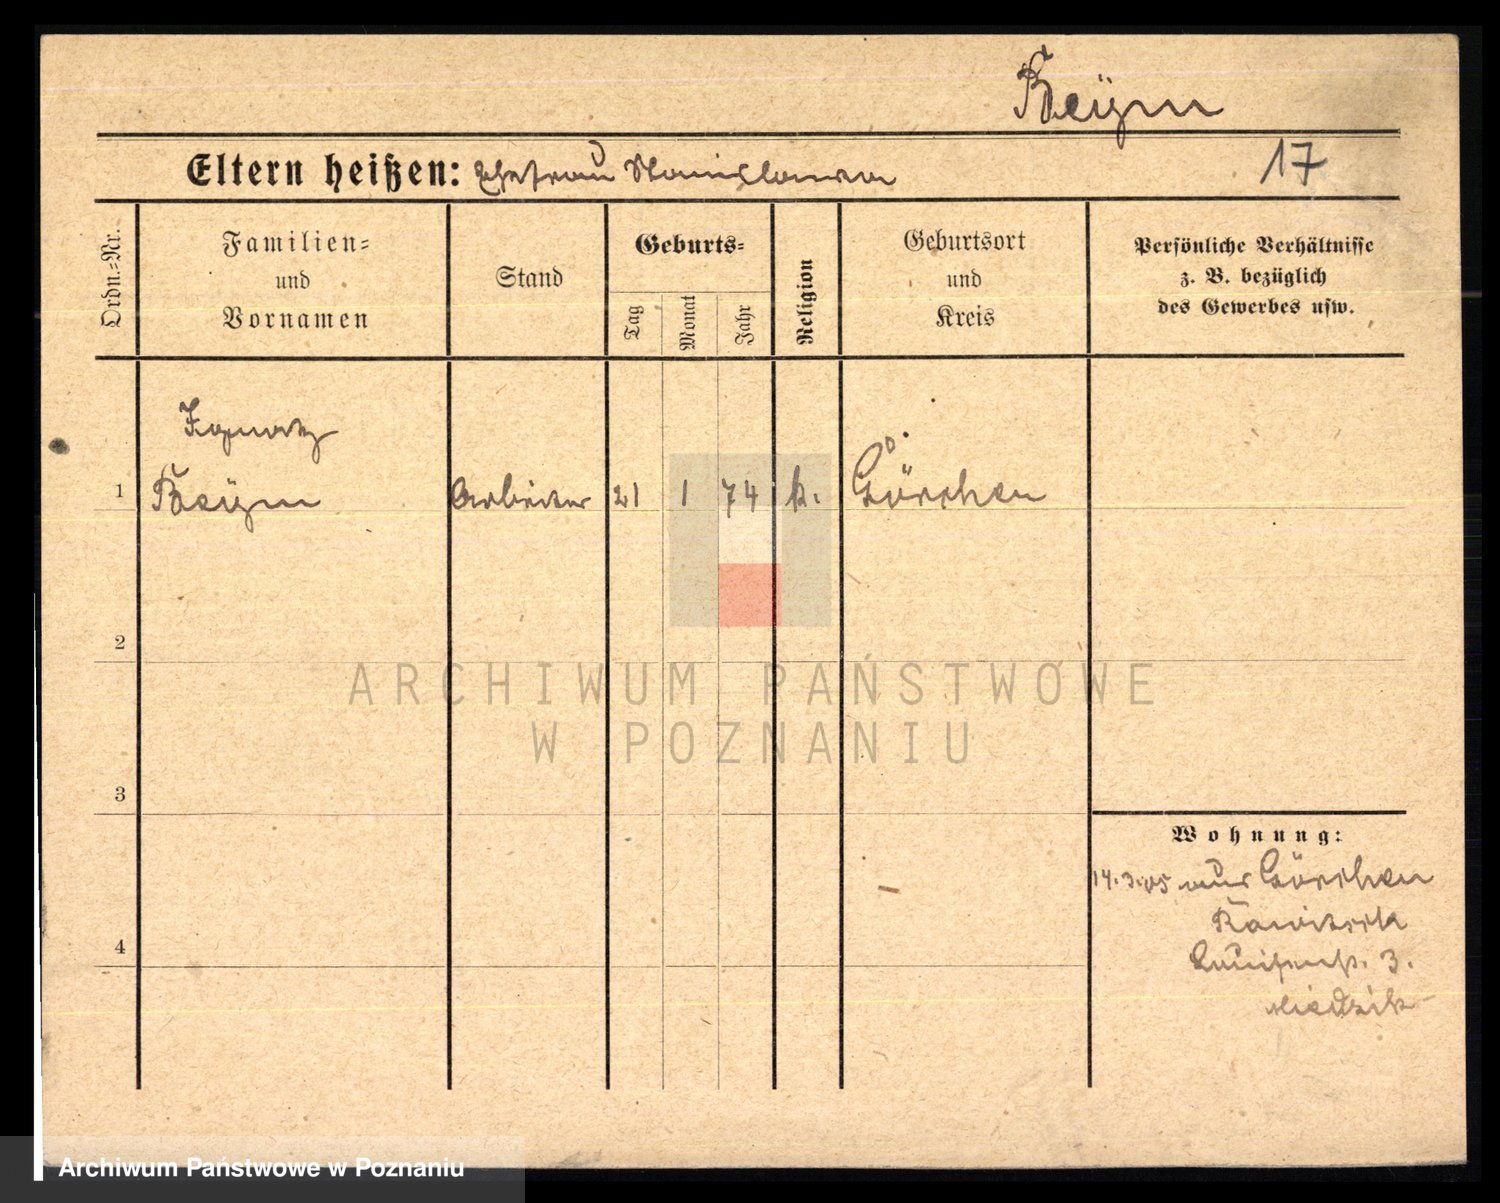 Beÿm
Eltern heißen: Ehefrau Stanislawa
17
Ordn.=Nr.
Familien=
und
Vornamen
Stand
Geburts=
Tag
Monat
Jahr
Religion
Geburtsort
und
Kreis
Persönliche Verhältnisse
z. B. bezüglich
des Gewerbes usw.
Ignatz
1 Beÿm Arbeiter 21 1 74 k. Görchen
2
3
4
Wohnung:
14.3.05 aus Görchen
Rawitsch
Luisenstr. 3.
ARCHIWUM PAŃSTWOWE
W POZNANIU
Archiwum Państwowe w Poznaniu